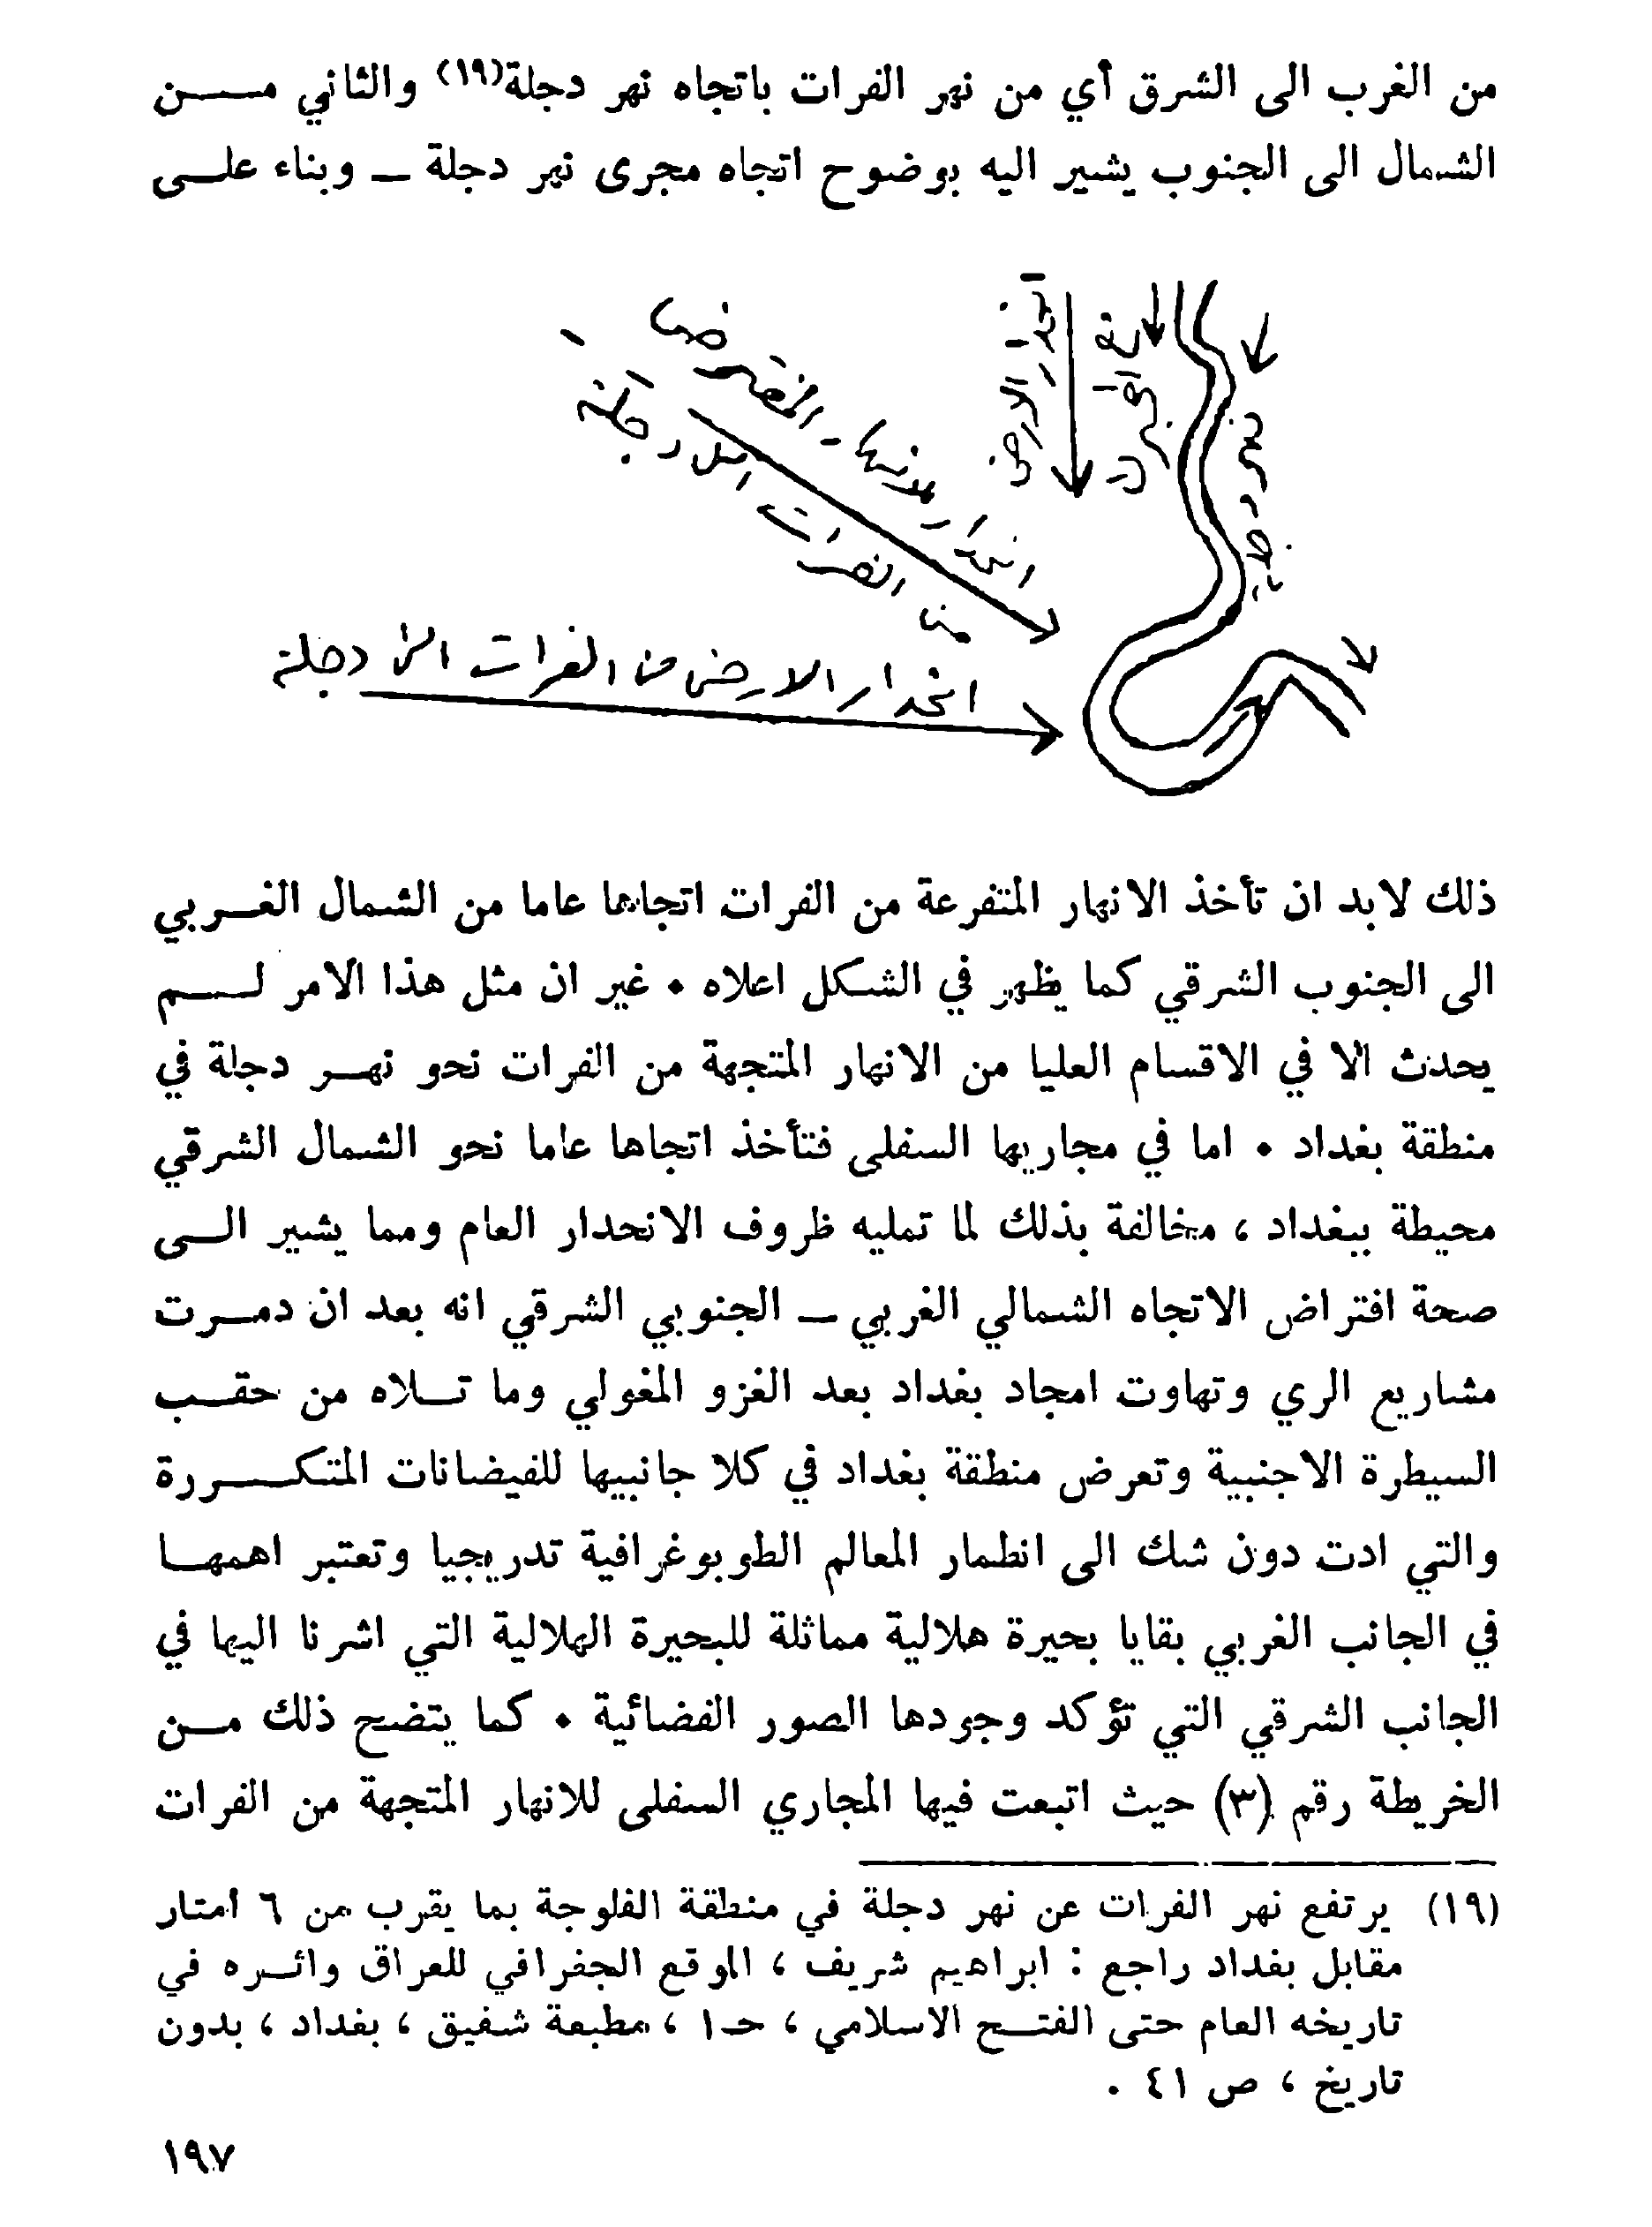 من الغرب الى الشرق أي من نهر الفرات باتجاه نهر دجلة(١٩) والثاني مـــن
الشمال الى الجنوب يشير اليه بوضوح اتجاه مجرى نهر دجلة ــ وبناء علـى
انحدار الارض
نحو الجنوب
نهر دجلة
انحدار الانهار المفترض
من الفرات الى دجلة
انحدار الارض من الفرات الى دجلة
ذلك لابد ان تأخذ الانهار المتفرعة من الفرات اتجاها عاما من الشمال الغـربي
الى الجنوب الشرقي كما يظهر في الشكل اعلاه . غير ان مثل هذا الامر لـــم
يحدث الا في الاقسام العليا من الانهار المتجهة من الفرات نحو نهـر دجلة في
منطقة بغداد . اما في مجاريها السفلى فتأخذ اتجاها عاما نحو الشمال الشرقي
محيطة ببغداد ، مخالفة بذلك لما تمليه ظروف الانحدار العام ومما يشير الـى
صحة افتراض الاتجاه الشمالي الغربي ــ الجنوبي الشرقي انه بعد ان دمـرت
مشاريع الري وتهاوت امجاد بغداد بعد الغزو المغولي وما تـلاه من حقـب
السيطرة الاجنبية وتعرض منطقة بغداد في كلا جانبيها للفيضانات المتكـــررة
والتي ادت دون شك الى انطمار المعالم الطوبوغرافية تدريجيا وتعتبر اهمهـا
في الجانب الغربي بقايا بحيرة هلالية مماثلة للبحيرة الهلالية التي اشرنا اليها في
الجانب الشرقي التي تؤكد وجودها الصور الفضائية . كما يتضح ذلك مـن
الخريطة رقم (٣) حيث اتبعت فيها المجاري السفلى للانهار المتجهة من الفرات
(١٩) يرتفع نهر الفرات عن نهر دجلة في منطقة الفلوجة بما يقرب من ٦ امتار
مقابل بغداد راجع : ابراهيم شريف ، الموقع الجغرافي للعراق واثـره في
تاريخه العام حتى الفتـح الاسلامي ، حـ١ ، مطبعة شفيق ، بغداد ، بدون
تاريخ ، ص ٤١ .
١٩٧